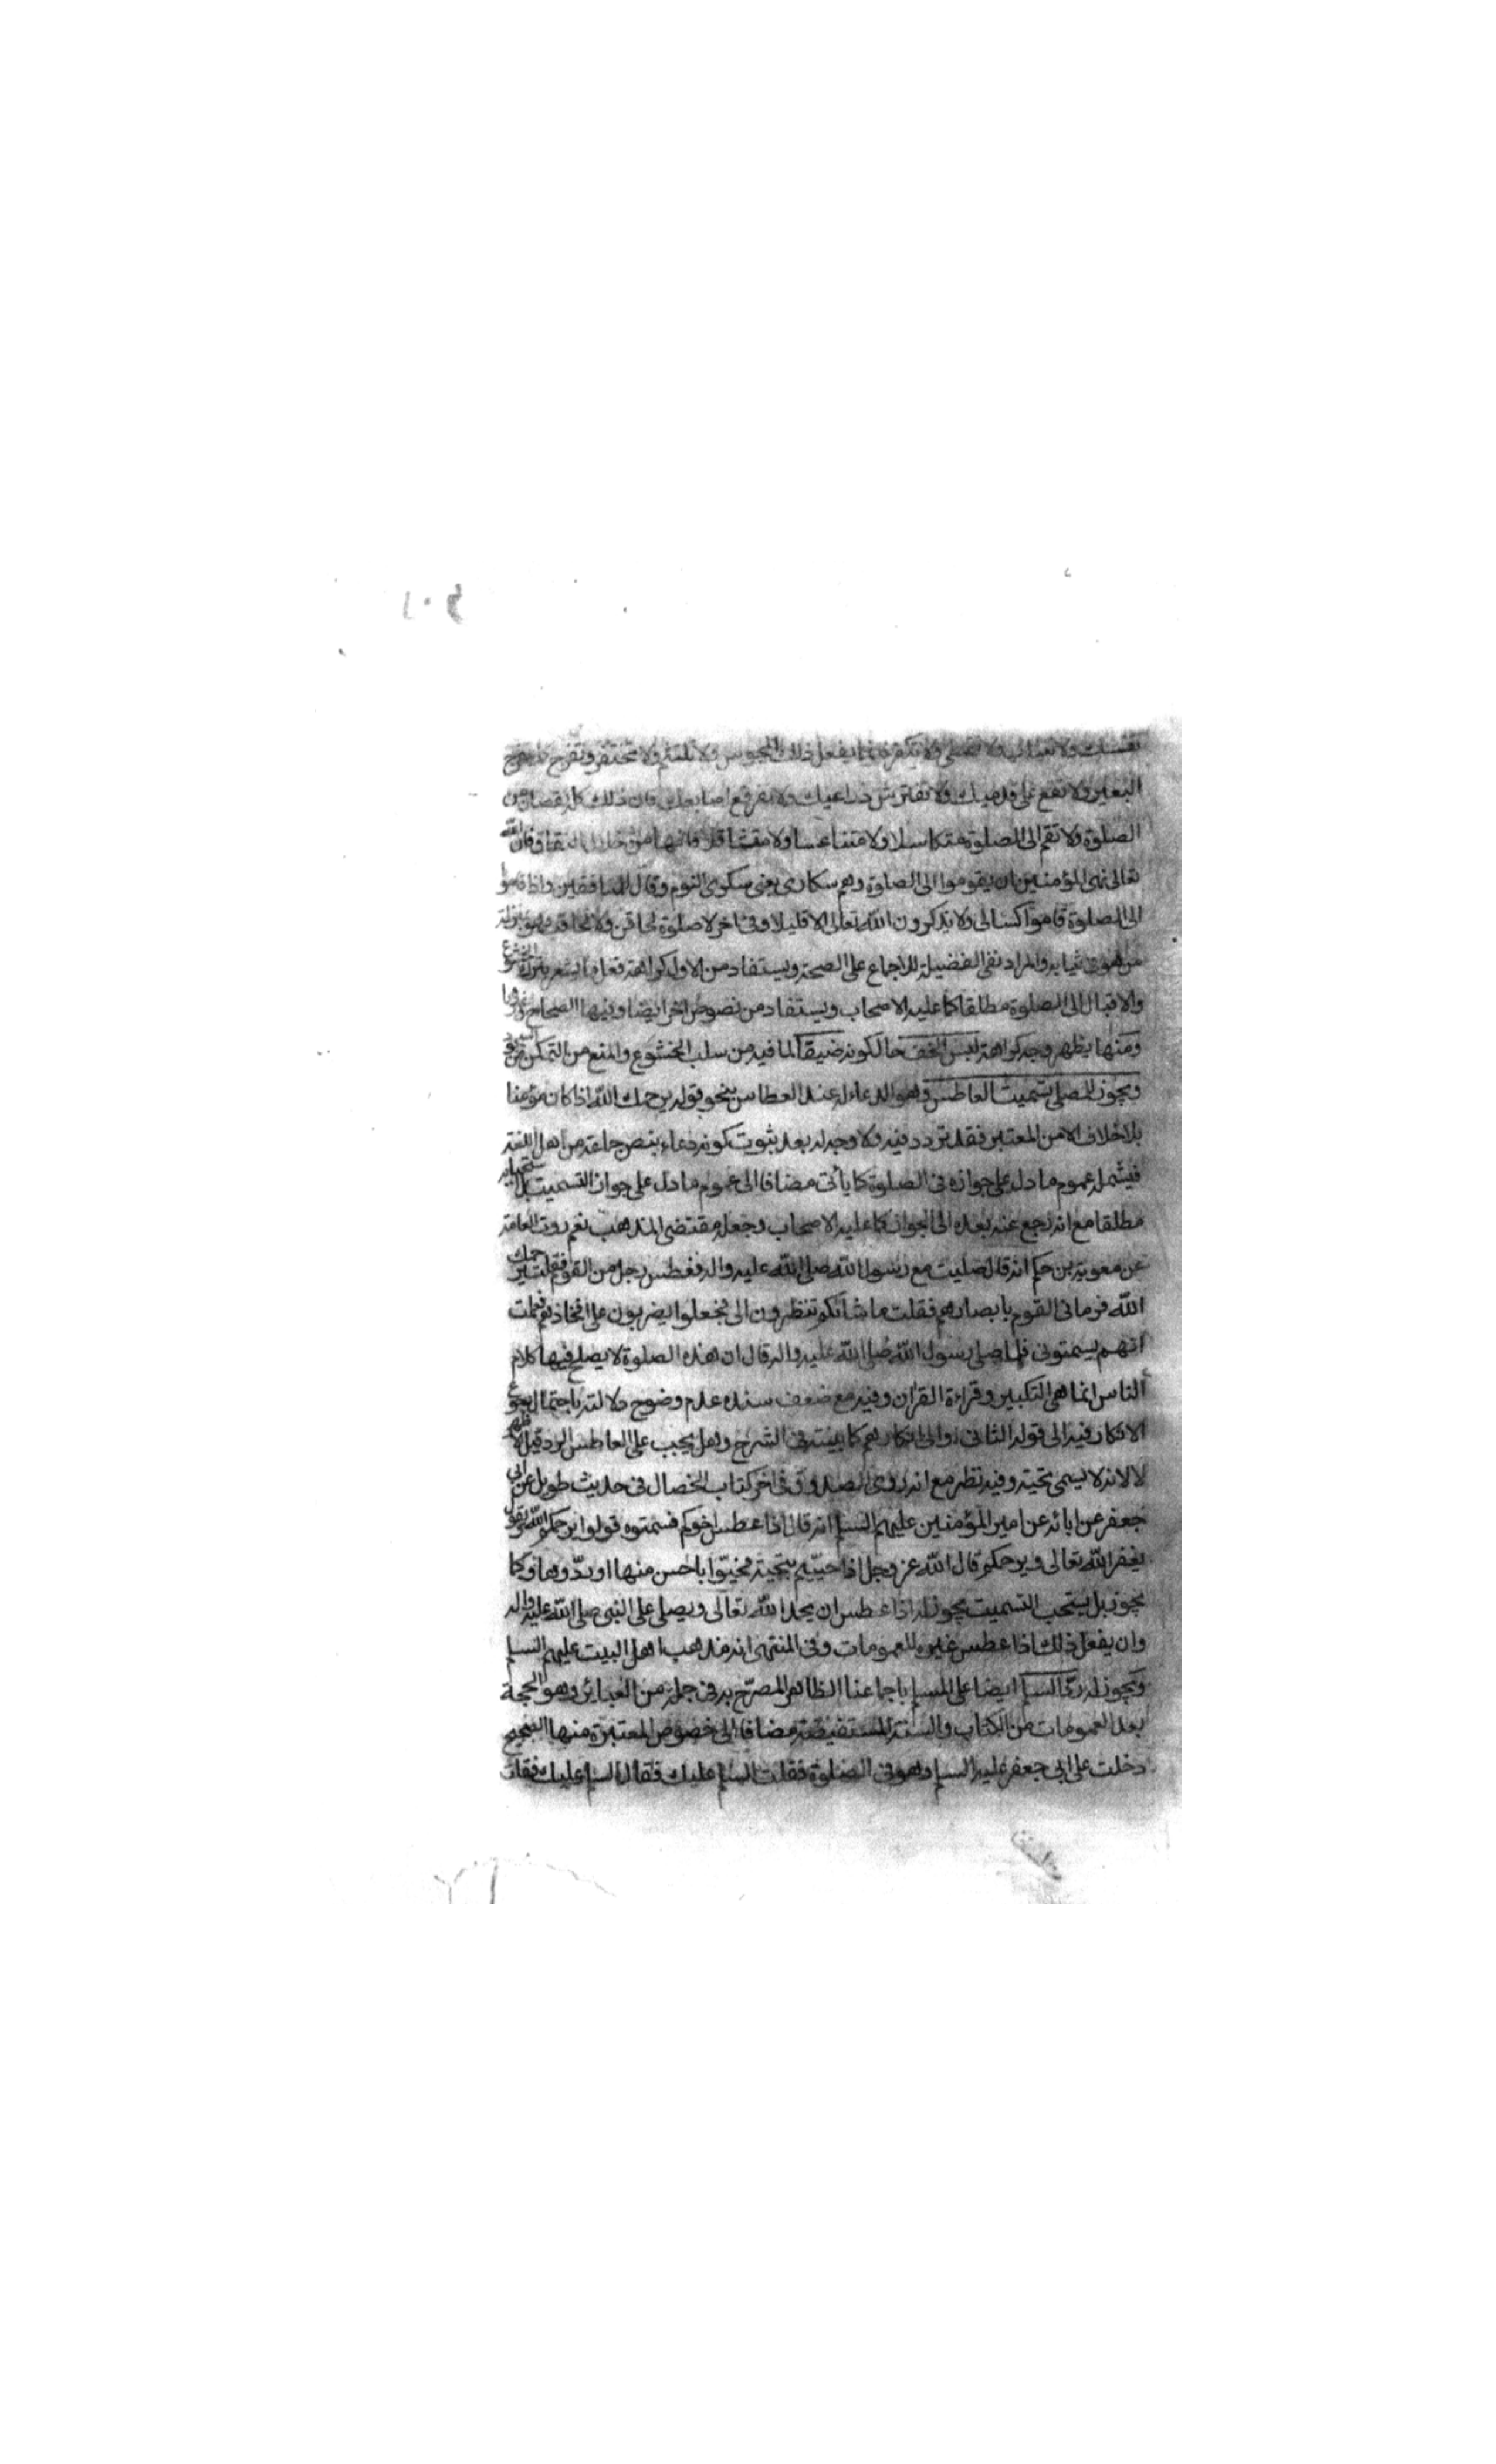 ولا يكفر فانما يفعل ذلك المجوس ولا تلثم ولا تحتفز وتفرج كما يتفرج
البعير ولا تقع على قدميك ولا تفترش ذراعيك ولا تفرقع اصابعك فان ذلك كله نقصان من
الصلوة ولا تقم الى الصلوة متكاسلا ولا متناعسا ولا متثاقلا فانها من خلال النفاق فان الله
تعالى نهى المؤمنين ان يقوموا الى الصلوة وهم سكارى يعنى سكرى النوم وقال للمنافقين واذا قاموا
الى الصلوة قاموا كسالى ولا يذكرون الله تعالى الا قليلا وفى اخر لا صلوة لحاقن ولا لحاقنة وهو بمنزلة
من هو فى ثيابه والمراد نفى الفضيلة للاجماع على الصحة ويستفاد من الاول كراهة فعل ما يشعر بترك الخشوع
والاقبال الى الصلوة مطلقا كما عليه الاصحاب ويستفاد من نصوص اخر ايضا وفيها الصحاح وغيرها
ومنها يظهر وجه كراهة لبس الخف حالكونه ضيقا لما فيه من سلب الخشوع والمنع من التمكن من السجود
ويجوز للمصلى تسميت العاطس وهو الدعاء له عند العطاس بنحو قوله يرحمك الله اذا كان مؤمنا
بلا خلاف الا من المعتبر فقد تردد فيه ولا وجه له بعد ثبوت كونه دعاء بنص جماعة من اهل اللغة
فيشمله عموم ما دل على جوازه فى الصلوة كما يأتى مضافا الى عموم ما دل على جواز التسميت بل استحبابه
مطلقا مع انه رجع عنه بعده الى الجواز كما عليه الاصحاب وجعله مقتضى المذهب نعم روت العامة
عن معوية بن حكم انه قال صليت مع رسول الله صلى الله عليه واله فعطس رجل من القوم فقلت يرحمك
الله فرمانى القوم بابصارهم فقلت ما شانكم تنظرون الى فجعلوا يضربون على افخاذهم فعلمت
انهم يسمتونى فلما صلى رسول الله صلى الله عليه واله قال ان هذه الصلوة لا يصلح فيها كلام
الناس انما هى التكبير وقراءة القران وفيه مع ضعف سنده عدم وضوح دلالته باحتمال رجوع
الانكار فيه الى قوله الثانى او الى انكارهم كما بينته فى الشرح وهل يجب على العاطس الرد قيل الاظهر
لا لانه لا يسمى تحية وفيه نظر مع انه روى الصدوق فى اخر كتاب الخصال فى حديث طويل عن ابى
جعفر عن ابائه عن امير المؤمنين عليهم السلم انه قال اذا عطس اخوكم فسمتوه قولوا يرحمكم الله ويقول
يغفر الله تعالى ويرحمكم قال الله عز وجل اذا حييتم بتحية فحيوا باحسن منها او ردوها وكما
يجوز بل يستحب التسميت يجوز له اذا عطس ان يحمد الله تعالى ويصلى على النبى صلى الله عليه واله
وان يفعل ذلك اذا عطس غيره للعمومات وفى المنتهى انه مذهب اهل البيت عليهم السلم
ويجوز له رد السلم ايضا على المسلم باجماعنا الظاهر المصرح به فى جملة من العبائر وهو الحجة
بعد العمومات من الكتاب والسنة المستفيضة مضافا الى خصوص المعتبرة منها الصحيح
دخلت على ابى جعفر عليه السلم وهو فى الصلوة فقلت السلم عليك فقال السلم عليك فقلت